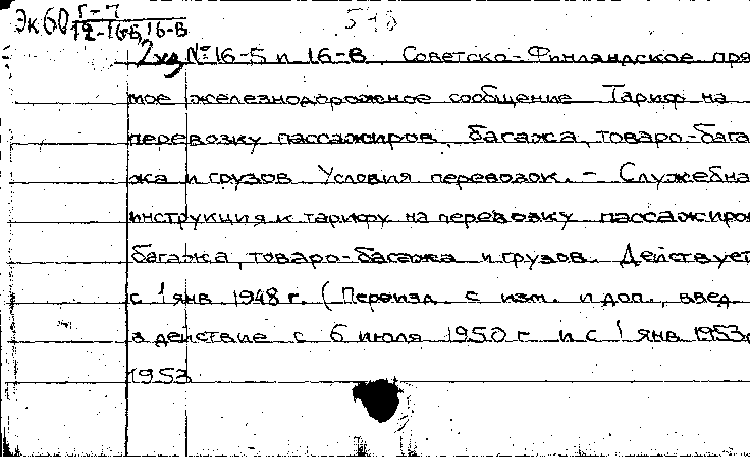 Эк60 Г-7
12-16-Б, 16-В
2 уз. № 16-Б и 16-В. Советско-Финляндское пря
мое железнодорожное сообщение Тариф на
перевозку пассажиров, багажа, товаро-бага
жа и грузов Условия перевозок. – Служебна
инструкция к тарифу на перевозку пассажиро
багажа, товаро-багажа и грузов. Действует
с 1 янв 1948 г. (Переизд. с изм. и доп., введ.
в действие с 6 июля 1950 г и с 1 янв 1953г
1953